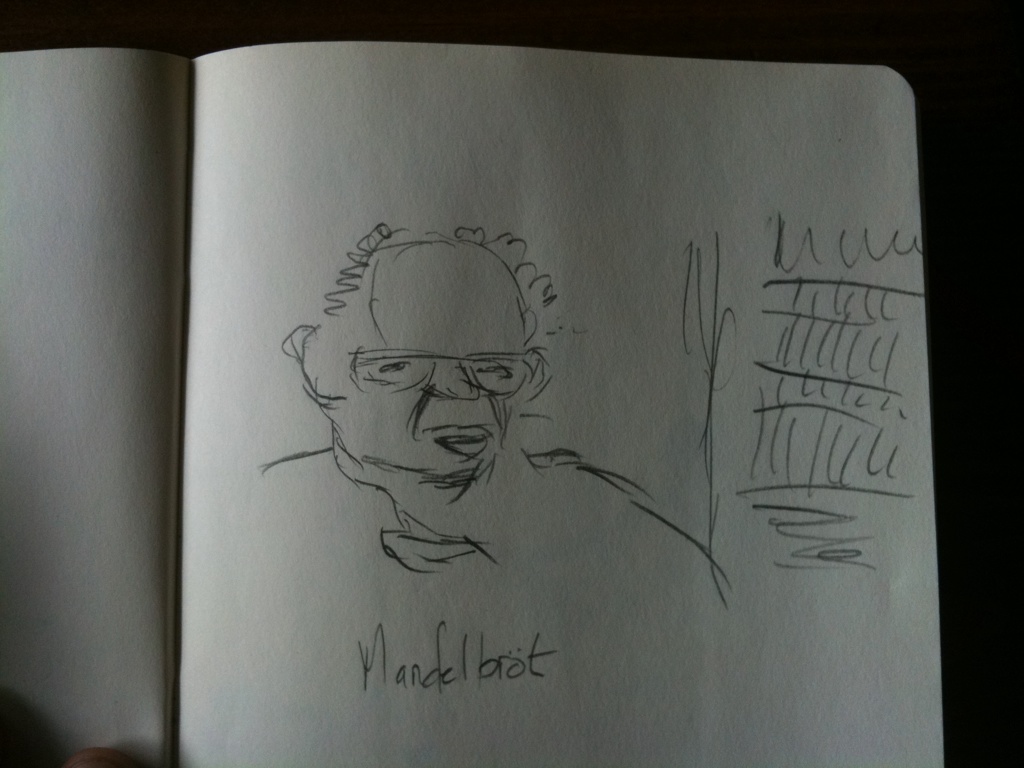 Mandelbröt